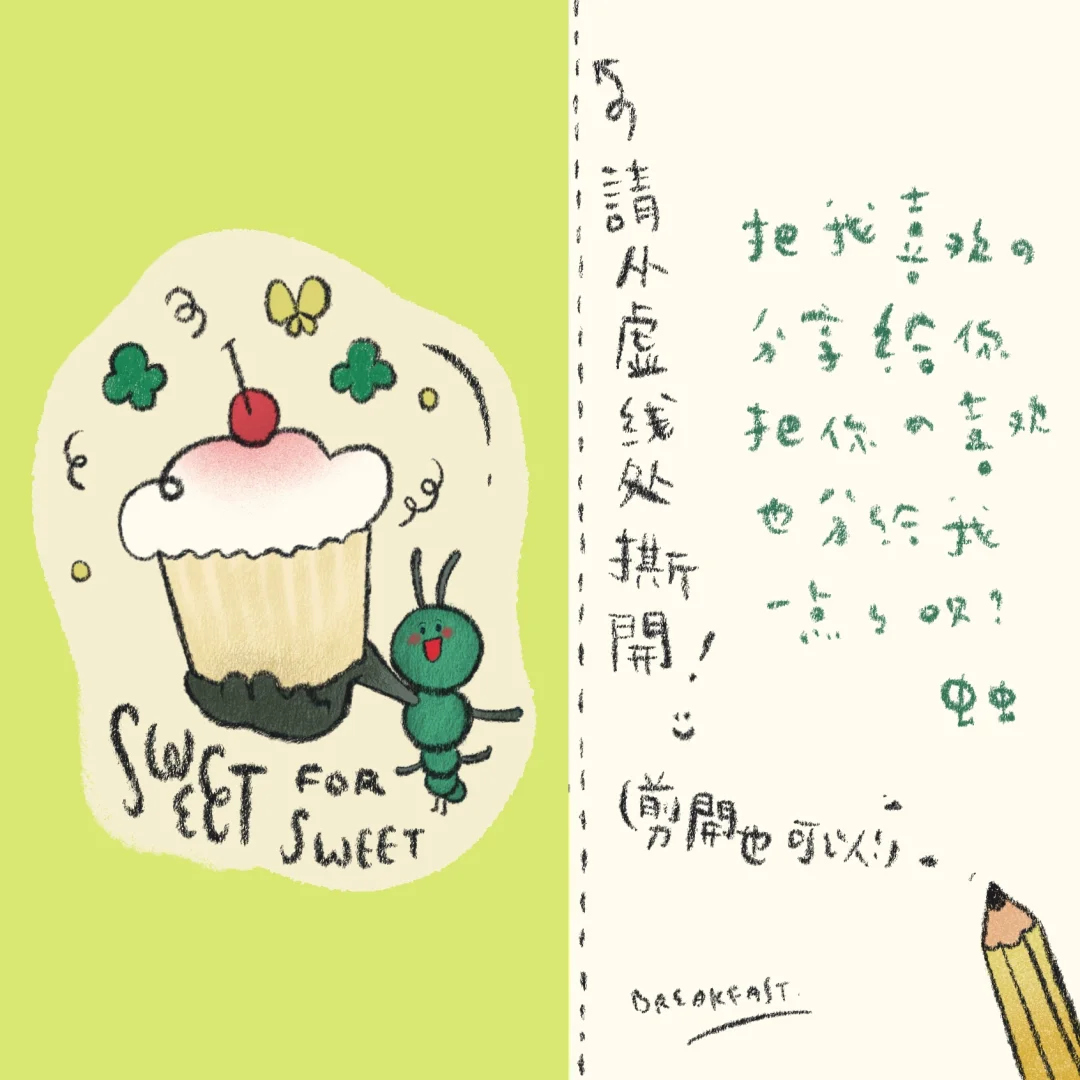 SWEET FOR
SWEET
請从虚线处撕開!
把我喜欢の
分享给你
把你の喜欢
也分给我
一点点呗?
(剪開也可以!)
BREAKFAST.